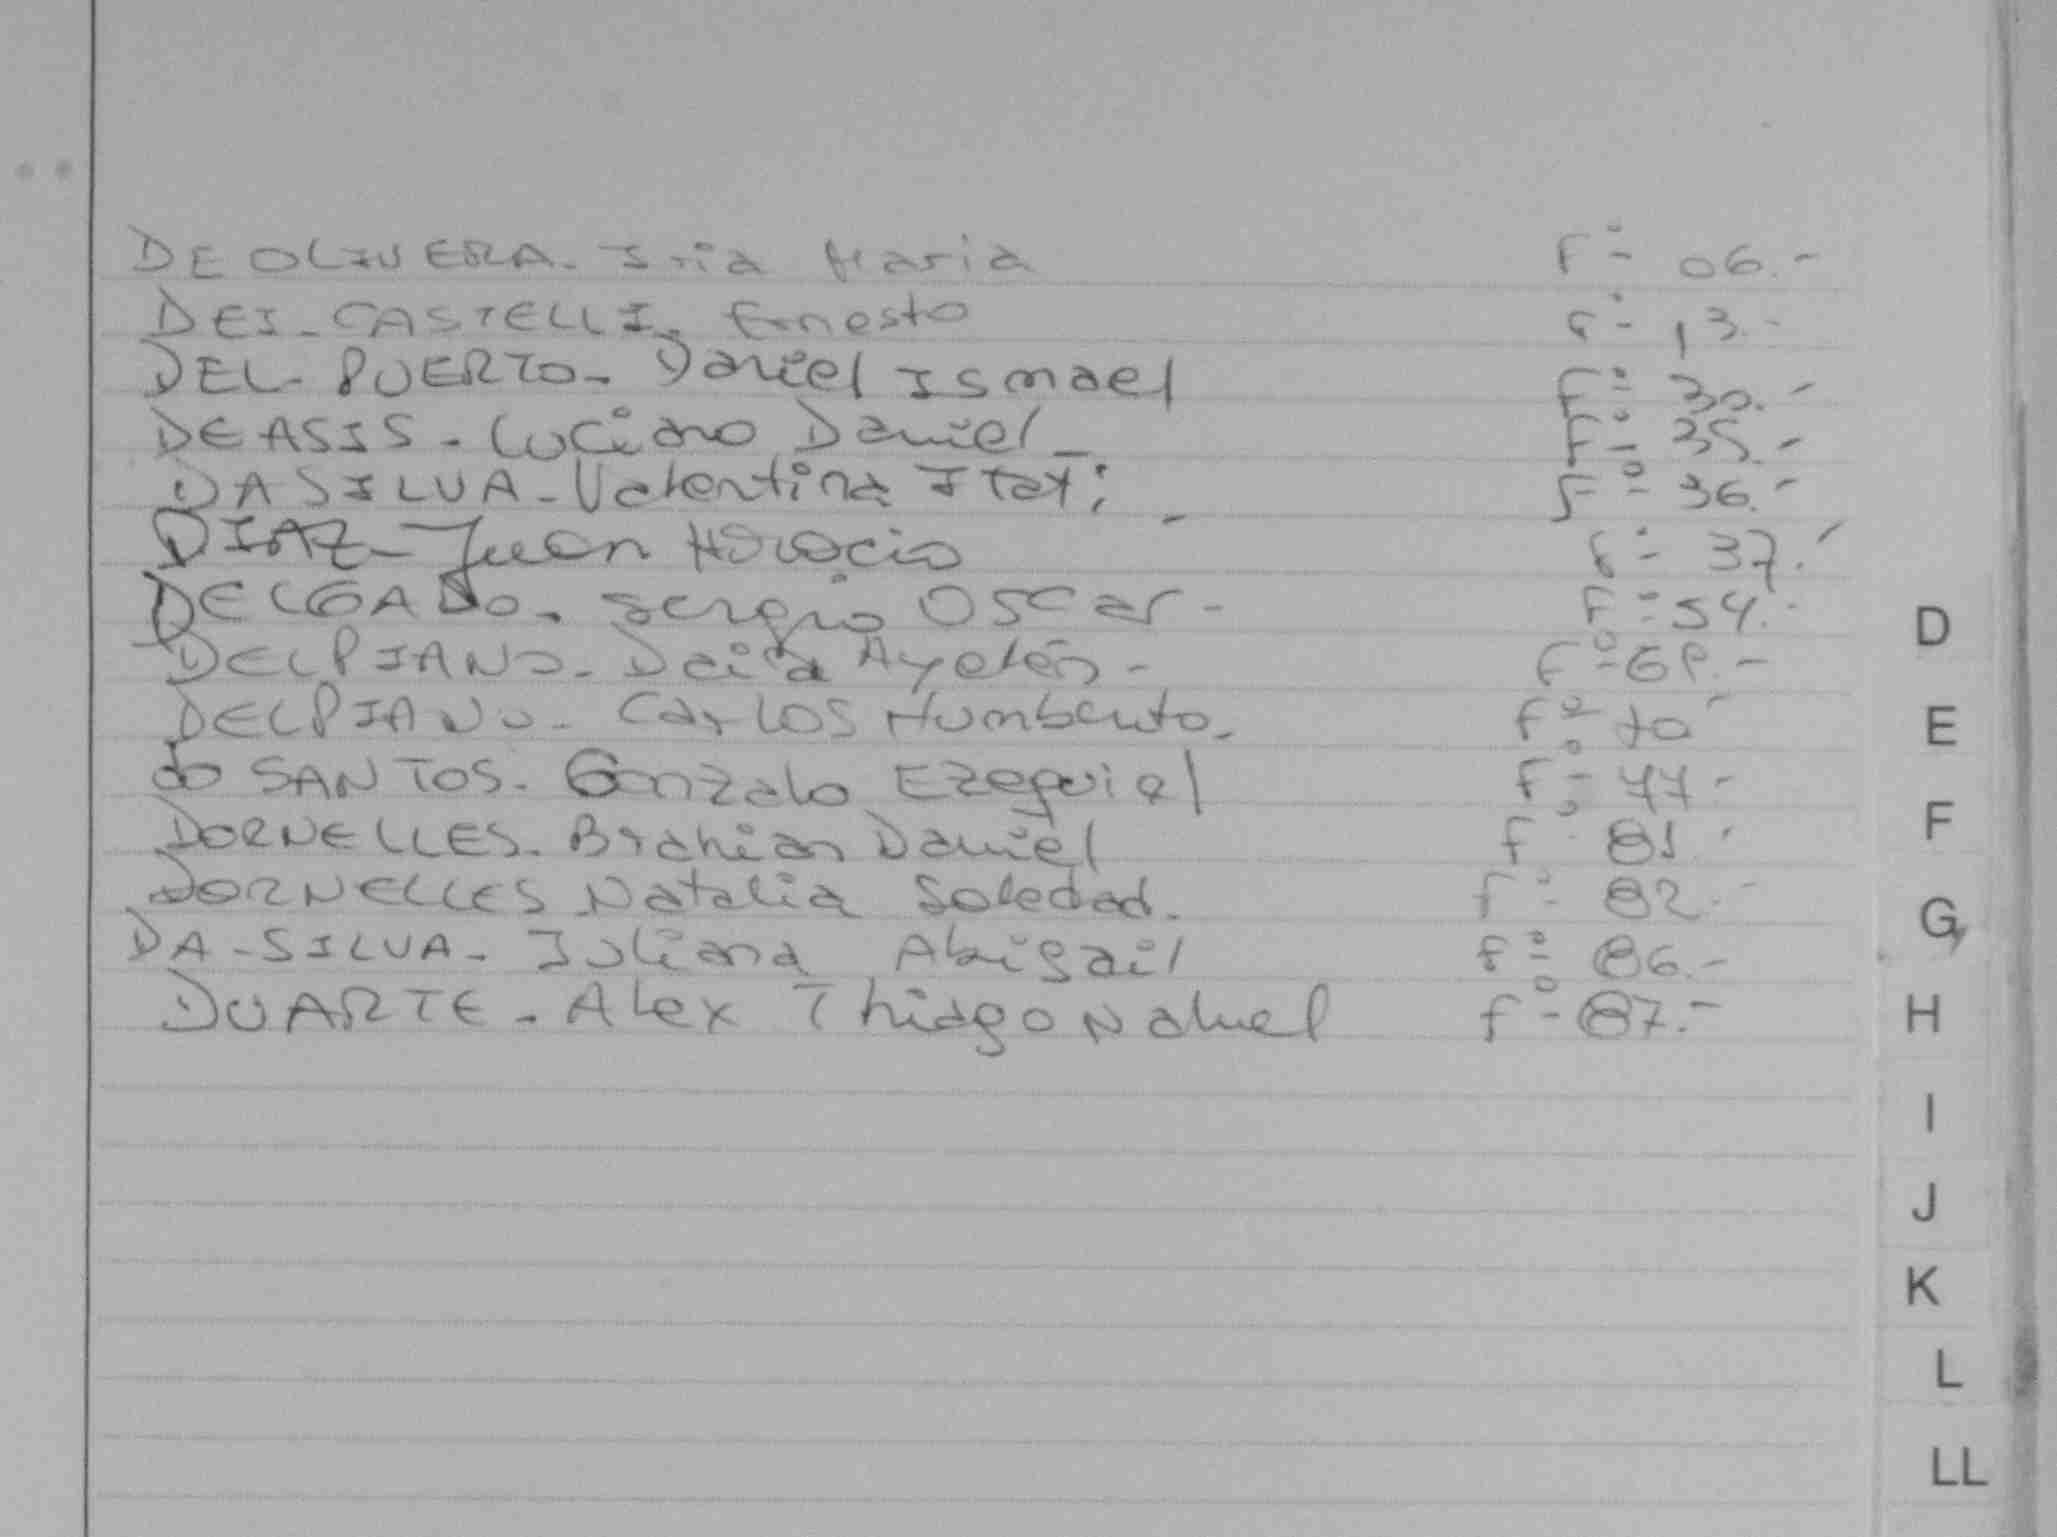 DE OLIVERA - Iria Maria F° 06.-
DEI - CASTELLI, Ernesto F° 13.-
DEL PUERTO - Daniel Ismael F° 30.-
DE ASIS - Luciano Daniel - F° 35.-
DA SILVA - Valentina Itatí - F° 36.-
DIAZ - Juan Horacio F° 37.-
DELGADO - Sergio Oscar - F° 54.-
DELPIANO - Ayelén - F°
DELPIANO - Carlos Humberto. F° 70
do SANTOS - Gonzalo Ezequiel F° 77-
DORNELLES - Brahian Daniel F° 81
DORNELLES Natalia Soledad. F° 82.-
DA - SILVA - Juliana Abigail F° 86.-
DUARTE - Alex Thiago Nahuel F° 87.-
D
E
F
G
H
I
J
K
L
LL